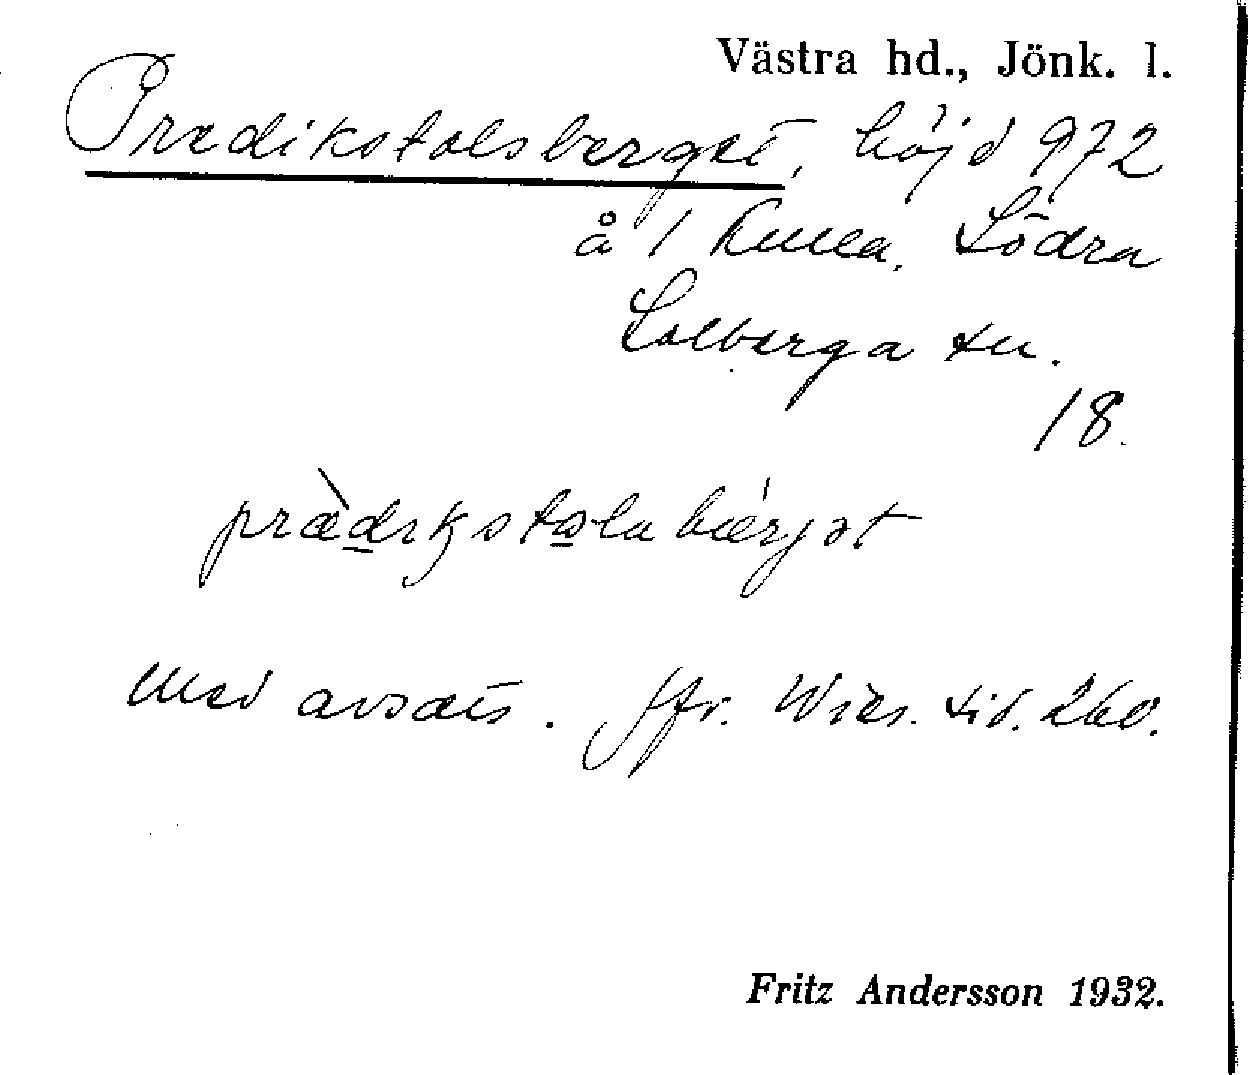 Västra hd., Jönk. l.
Predikstolsberget, höjd 972
å 1 Kulla, Södra
Solberga sn.
18.
med avsats. Jfr. Wies. tid. 260.
Fritz Andersson 1932.